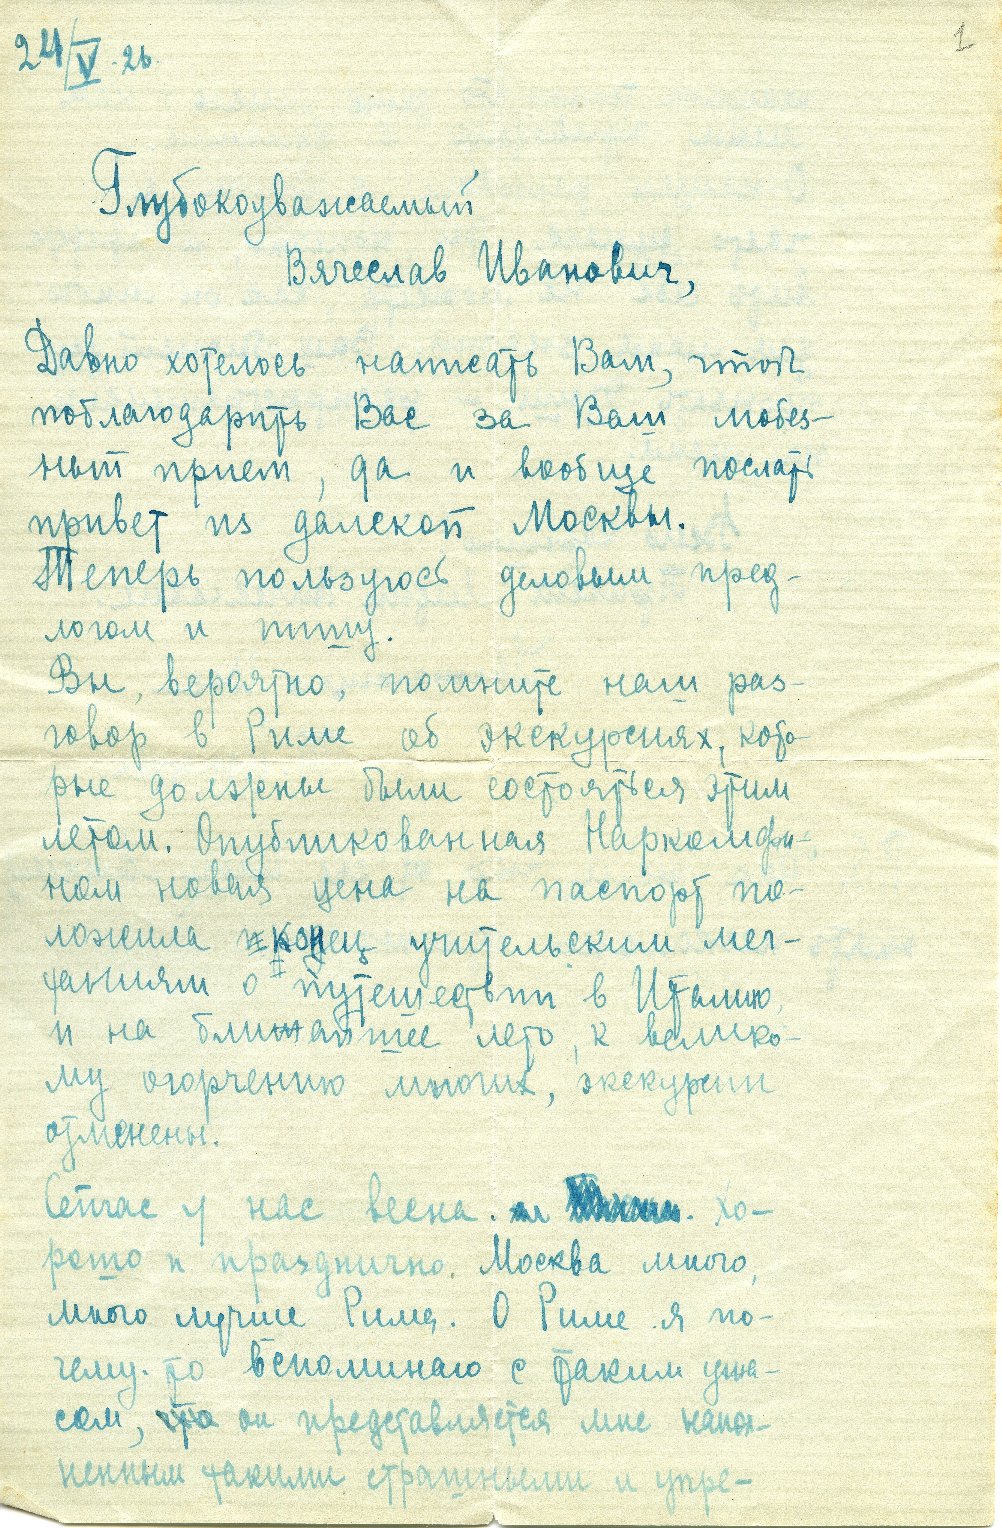 24/V. 26.
1
Глубокоуважаемый
Вячеслав Иванович,
Давно хотелось написать Вам, чтоб
поблагодарить Вас за Ваш любез-
ный прием, да и вообще послать
привет из далекой Москвы.
Теперь пользуюсь деловым пред-
логом и пишу.
Вы, вероятно, помните наш раз-
говор в Риме об экскурсиях, кото-
рые должны были состояться этим
летом. Опубликованная Наркомфи-
ном новая цена на паспорт по-
ложила конец учительским меч-
таниям о путешествии в Италию,
и на ближайшее лето, к велико-
му огорчению многих, экскурсии
отменены.
Сейчас у нас весна. Хо-
рошо и празднично. Москва много,
много лучше Рима. О Риме я по-
чему-то вспоминаю с таким ужа-
сом, что он представляется мне напол-
ненным такими страшными и упре-